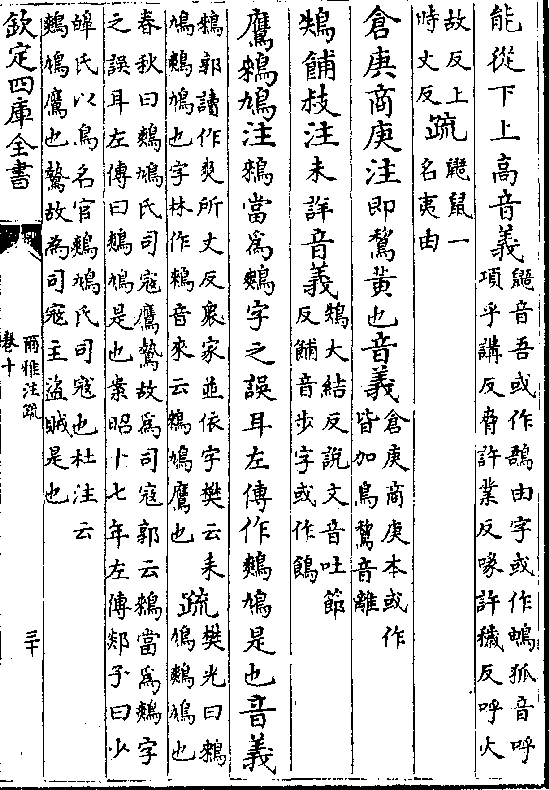 能從下上高音義
鼯音吾或作由字或作狐音呼
項乎講反脅許業反喙許穢反呼火
故反上
時丈反
疏
鼯鼠一
名夷由
倉庚商庚注即鵹黃也音義
倉庚商庚本或作
皆加鳥鵹音離
鴩餔枝注未詳音義
鴩大結反說文音吐節
反餔音步字或作
鷹鶆鳩注鶆當爲鷞字之誤耳左傳作鷞鳩是也音義
鶆郭讀作爽所丈反衆家並依字樊云來
鳩鷞鳩也字林作鶆音來云鶆鳩鷹也
疏
樊光曰鶆
鳩鷞鳩也
春秋曰鷞鳩氏司寇鷹鷙故爲司寇郭云鶆當爲鷞字
之誤耳左傳曰鷞鳩是也案昭十七年左傳郯子曰少
皥氏以鳥名官鷞鳩氏司寇也杜注云
鷞鳩鷹也鷙故為司寇主盜賊是也
欽定四庫全書
爾雅注疏
卷十
三十